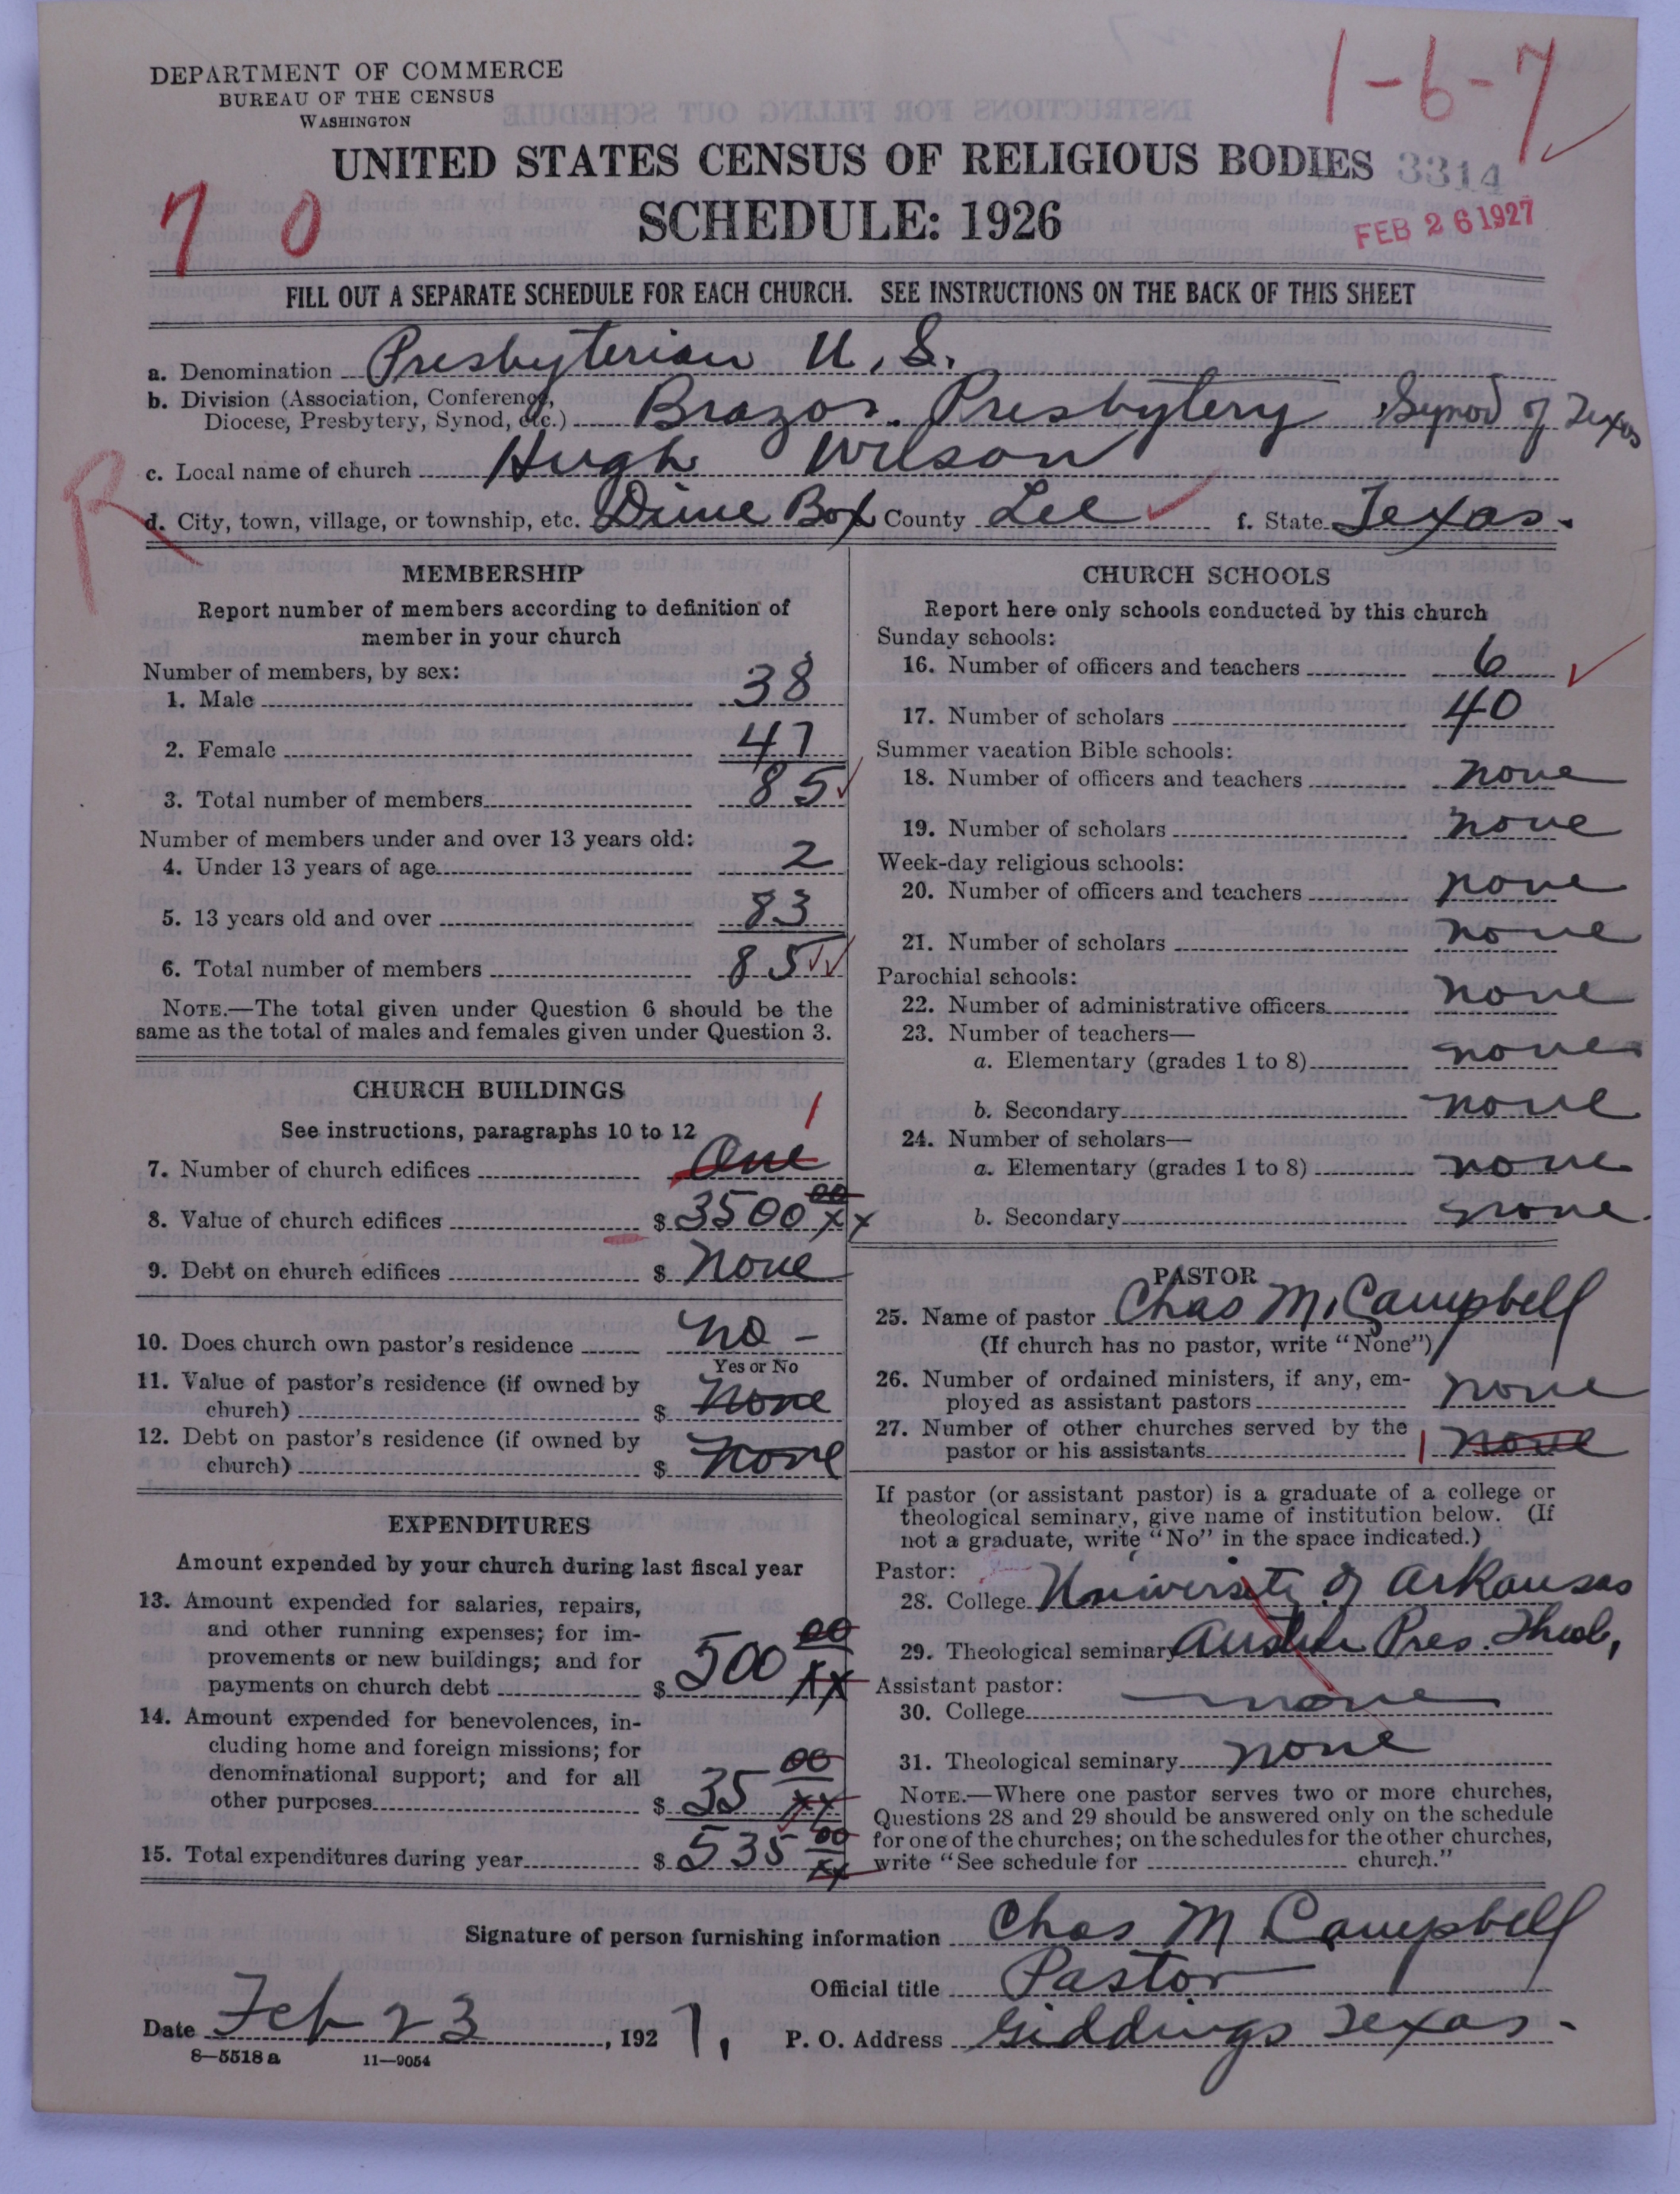 DEPARTMENT OF COMMERCE
BUREAU OF THE CENSUS
WASHINGTON
1-6-7
UNITED STATES CENSUS OF RELIGIOUS BODIES 3314
70
SCHEDULE: 1926
FEB 26 1927
FILL OUT A SEPARATE SCHEDULE FOR EACH CHURCH. SEE INSTRUCTIONS ON THE BACK OF THIS SHEET
a. Denomination Presbyterian U.S.
b. Division (Association, Conference, Diocese, Presbytery, Synod, etc.) Brazos Presbytery, Synod of Texas
c. Local name of church Hugh Wilson
R
d. City, town, village, or township, etc. Dime Box County Lee f. State Texas.
MEMBERSHIP
Report number of members according to definition of
member in your church
Number of members, by sex:
1. Male 38
2. Female 47
3. Total number of members 85
Number of members under and over 13 years old:
4. Under 13 years of age 2
5. 13 years old and over 83
6. Total number of members 85
NOTE.—The total given under Question 6 should be the
same as the total of males and females given under Question 3.
CHURCH BUILDINGS
See instructions, paragraphs 10 to 12
1
7. Number of church edifices One
8. Value of church edifices $ 3500 00 xx
9. Debt on church edifices $ None
10. Does church own pastor's residence no -
Yes or No
11. Value of pastor's residence (if owned by
church) $ None
12. Debt on pastor's residence (if owned by
church) $ None
EXPENDITURES
Amount expended by your church during last fiscal year
13. Amount expended for salaries, repairs,
and other running expenses; for im-
provements or new buildings; and for
payments on church debt $ 500 00 xx
14. Amount expended for benevolences, in-
cluding home and foreign missions; for
denominational support; and for all
other purposes $ 35 00 xx
15. Total expenditures during year $ 535 00 xx
CHURCH SCHOOLS
Report here only schools conducted by this church
Sunday schools:
16. Number of officers and teachers 6
17. Number of scholars 40
Summer vacation Bible schools:
18. Number of officers and teachers none
19. Number of scholars none
Week-day religious schools:
20. Number of officers and teachers none
21. Number of scholars none
Parochial schools:
22. Number of administrative officers none
23. Number of teachers—
a. Elementary (grades 1 to 8) none
b. Secondary none
24. Number of scholars—
a. Elementary (grades 1 to 8) none
b. Secondary none.
PASTOR
25. Name of pastor Chas M. Campbell
(If church has no pastor, write "None")
26. Number of ordained ministers, if any, em-
ployed as assistant pastors none
27. Number of other churches served by the
pastor or his assistants 1 none
If pastor (or assistant pastor) is a graduate of a college or
theological seminary, give name of institution below. (If
not a graduate, write "No" in the space indicated.)
Pastor:
28. College University of Arkansas
29. Theological seminary Austin Pres. Theol,
Assistant pastor:
30. College none
31. Theological seminary none
NOTE.—Where one pastor serves two or more churches,
Questions 28 and 29 should be answered only on the schedule
for one of the churches; on the schedules for the other churches,
write "See schedule for church."
Signature of person furnishing information Chas M Campbell
Official title Pastor
Date Feb 23, 1927, P. O. Address Giddings Texas.
8—5518a 11—9054